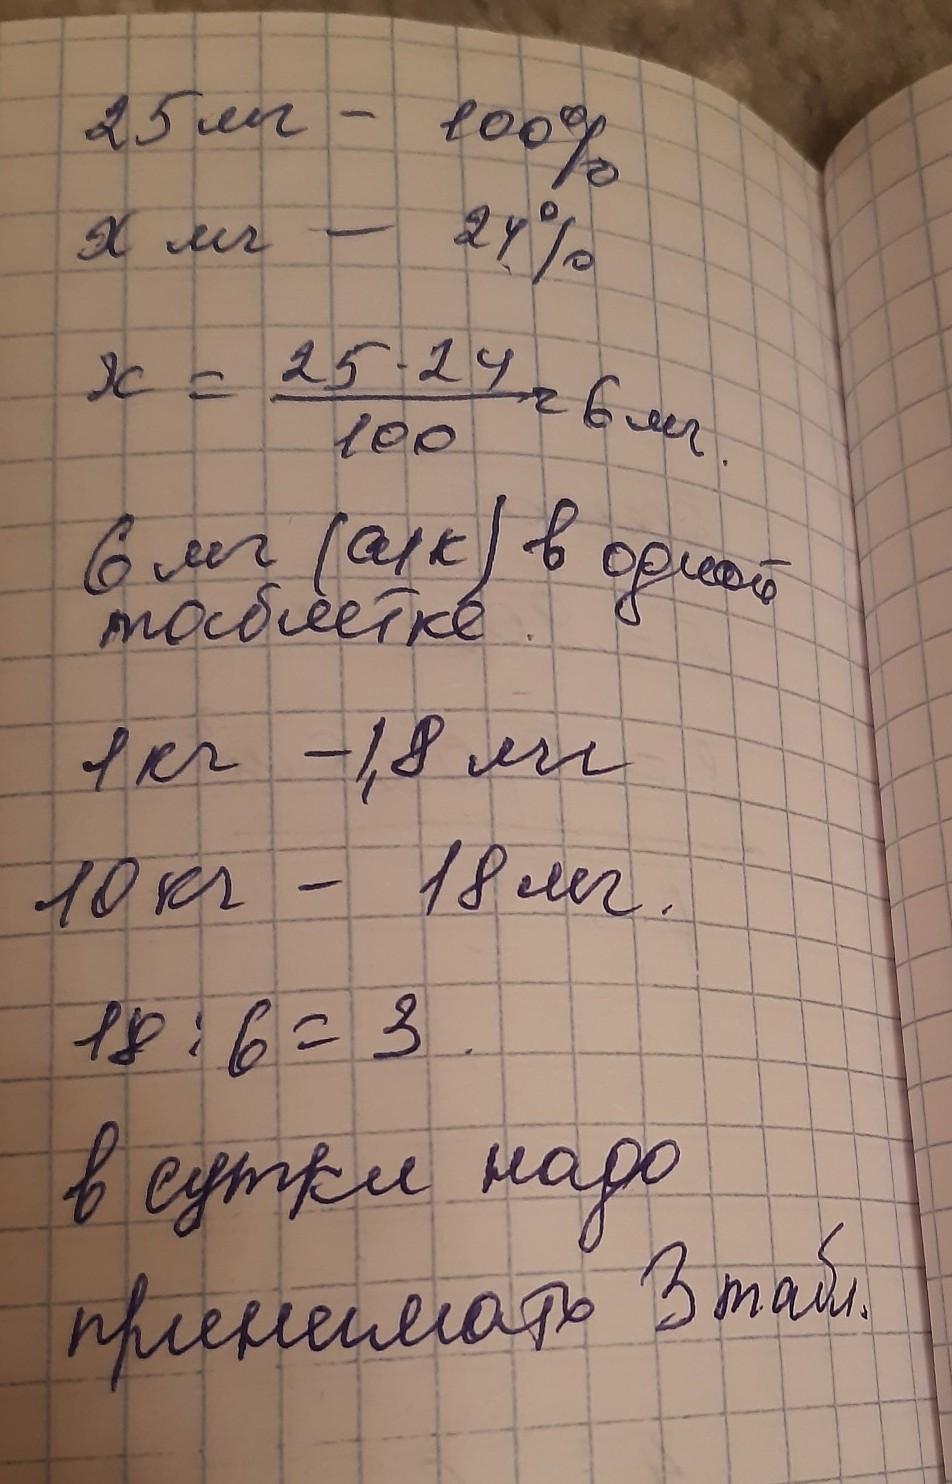 25 мг - 100%
х мг - 24%
х = 25·24 / 100 = 6 мг.
6 мг (а/к) в одной
таблетке.
1 кг - 1,8 мг
10 кг - 18 мг.
18 : 6 = 3.
в сутки надо
принимать 3 табл.